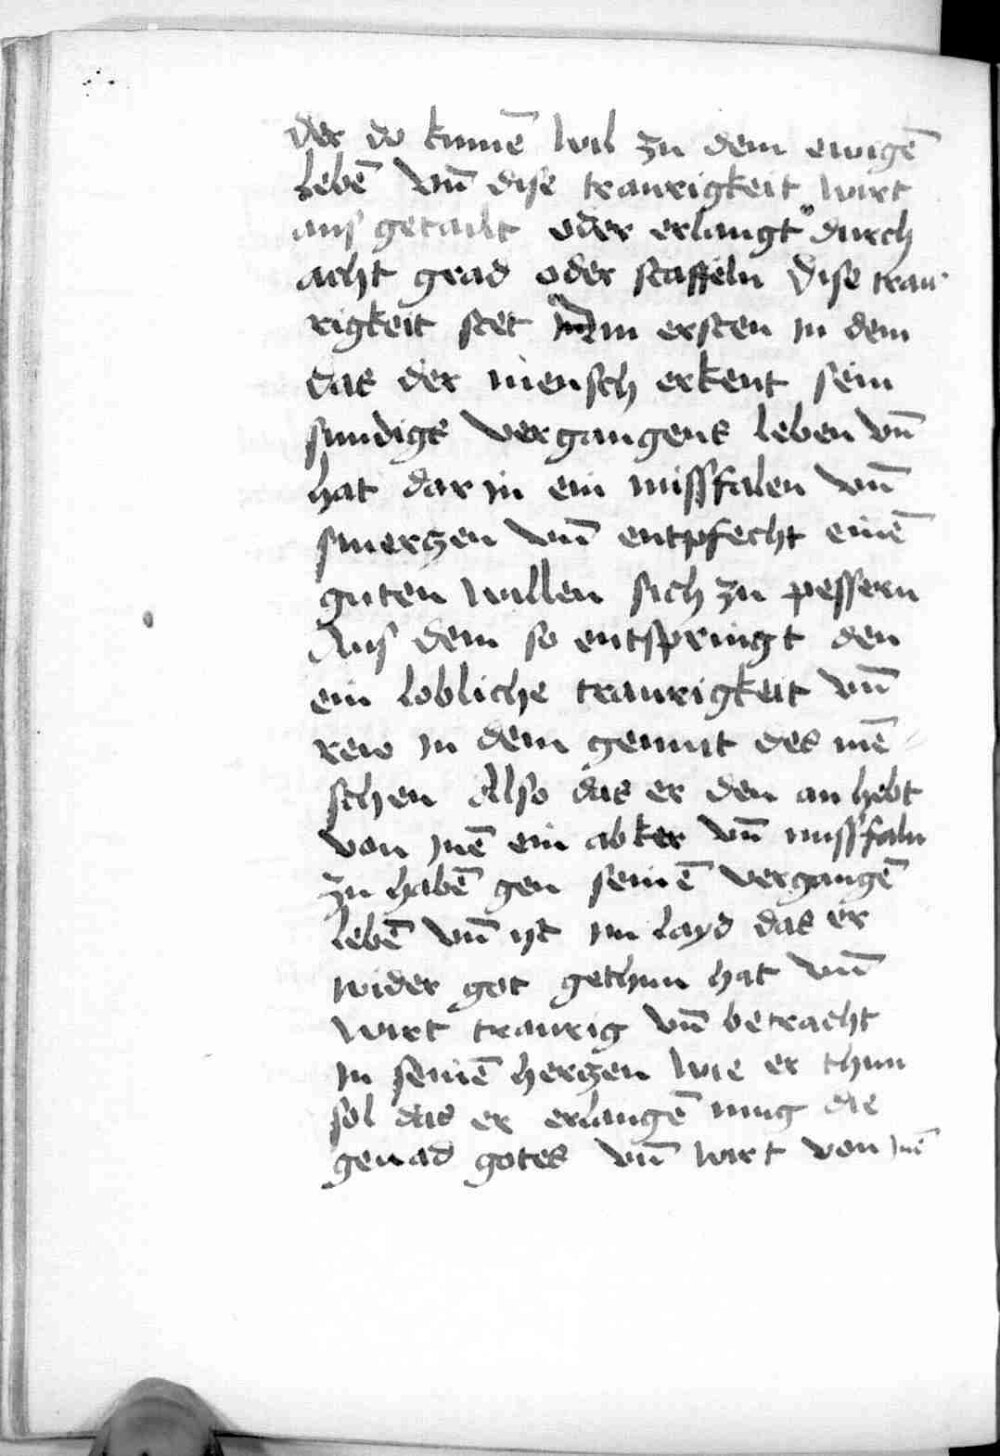 der do kumē wil zu dem ewigē
lebē vn̄ dise traurigkeit wirt
aus getailt oder erlangt durch
acht grad oder staffeln Dise trau
rigkeit stet zum ersten jn dem
das der mensch erkent sein
sundigs vergangens leben vn̄
hat dar jn ein missfalen vn̄
smerczen vn̄ entpfecht einē
guten willen sich zu pessern
Aus dem so entspringt den
ein lobliche traurigkeit vn̄
rew jn dem gemut des mē
schen Also das er den an hebt
von jnē ein abker vn̄ missfaln
zu habē gen seinē vergangē
lebē vn̄ ist im layd das er
wider got gethun hat vn̄
wirt traurig vn̄ betracht
jn seinē herczen wie er thun
sol das er erlangē mug die
genad gotes vn̄ wirt von jnē